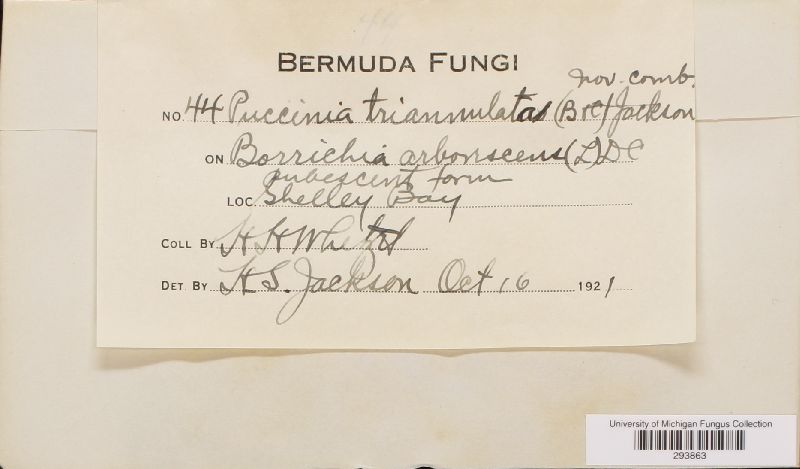 BERMUDA FUNGI
nov. comb.
NO. 44 Puccinia triannulata (B+C) Jackson
ON Borrichia arborescens (L) DC
pubescent form
LOC Shelley Bay
COLL BY H H Whetzel
DET. BY H S. Jackson Oct 16 1921
University of Michigan Fungus Collection
293863